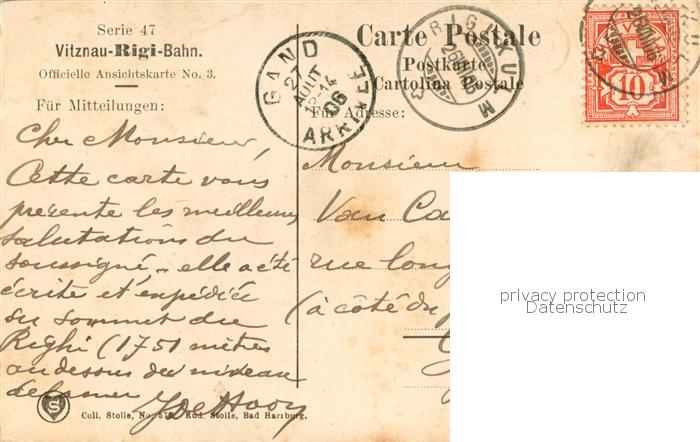 Serie 47
Vitznau-Rigi-Bahn.
Officielle Ansichtskarte No. 3.
Für Mitteilungen:
Carte Postale
Postkarte
Cartolina Postale
Für Adresse:
GAND
27
AOUT
06
ARRIVÉE
RIGIKULM
10
Cher Monsieur,
Cette carte vous
présente les meilleures
salutations du
soussigné – elle a été
écrite et expédiée
au sommet du
Righi (1751 mètres
au dessus du niveau
de la mer
Monsieur
Van Ca
rue long
(à côté du
privacy protection
Datenschutz
S
Coll. Stolle, No. Rud. Stolle, Bad Harzburg.